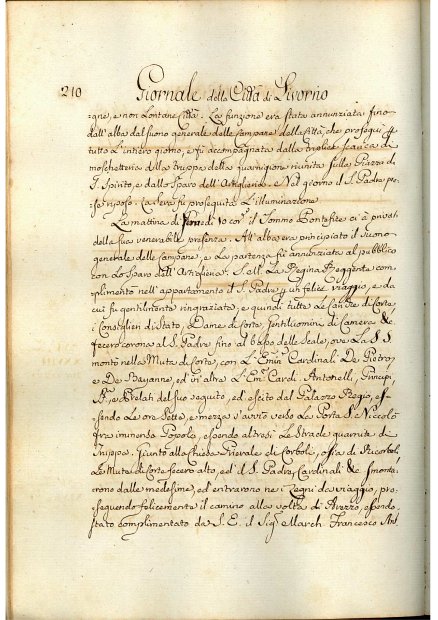 210 Giornale della Città di Livorno
zgne, e non Lontane Città. La funzione era stata annunziata fino
dall'alba dal suono generale delle campane della Città, che proseguì p
tutto L'intiero giorno, e fù accompagnata dalla triplice scarica di
moschetteria della Truppa della guarnigione riunita sulla Piazza di
S. Spirito, e dallo sparo dell'Artiglieria. Nel giorno il S. Padre pre-
se riposo. La sera fù proseguita L'illuminazione.
La mattina di 10 corr. il Sommo Pontefice ci à privati
della sua venerabile presenza. All'alba era principiato il suono
generale delle campane, e La partenza fù annunziata al pubblico
con Lo sparo dell'Artiglieria. S. ell. La Regina Reggente com-
plimentò nell'appartamento il S. Padre p un felice viaggio, e da
cui fù gentilmente ringraziata, e quindi tutte Le Cariche di Corte,
i Consiglieri di Stato, Dame di Corte, Gentiluomini di Camera &c.
fecero corona al S. Padre fino al basso delle Scale, ove La S. S.
montò nella Muta di Corte, con L'Emin Cardinali De Pietro,
e De Bayanne, ed in altra L'Em. Card. Antonelli, Principi
e Prelati del suo seguito, ed escito dal Palazzo Regio, es-
sendo Le ore Sette, e mezzo s'avviò verso La Porta S. Niccolò
fra immenso Popolo, essendo altresì Le Strade guarnite di
Truppa. Giunto alla Chiesa Prierale di Corbolo, ossia di Ricorboli,
Le Mute di Corte fecero alto, ed il S. Padre, Cardinali &c. smonta-
rono dalle medesime, ed entrarono ne' Legni da viaggio, pro-
seguendo felicemente il camino alla volta di Arezzo, essendo
stato complimentato da S. E. il Sig March. Francesco